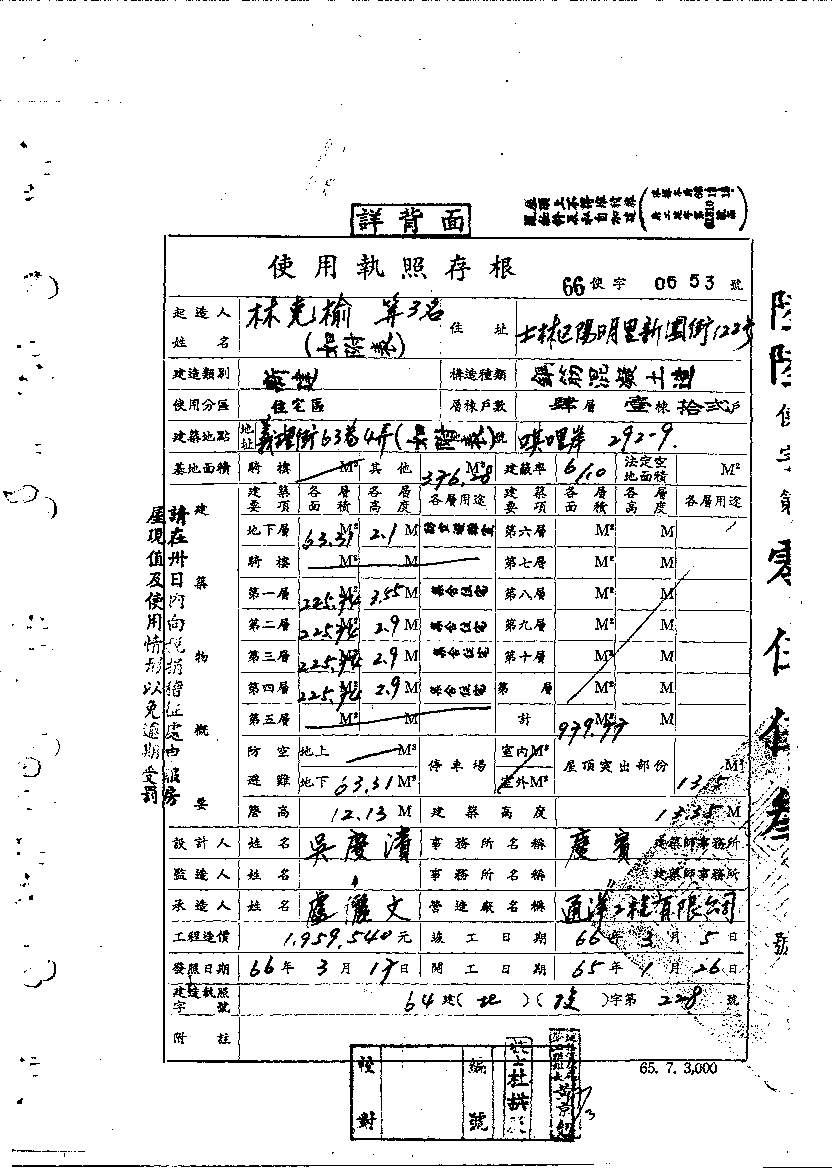 詳背面
使用執照存根
66使字 0653 號
起造人姓名 林克榆 等3名
住址 士林區陽明里新園街122號
建造類別
構造種類 鋼筋混凝土造
使用分區 住宅區
層棟戶數 肆層 壹棟 拾弍戶
建築地點 地址 義理街63巷4弄 號 唭哩岸 292-9
基地面積 騎樓 M² 其他 376.28 M² 建蔽率 6/10 法定空地面積 M²
建築要項 各層面積 各層高度 各層用途 建築要項 各層面積 各層高度 各層用途
建築物概要
地下層 63.31 M² 2.1 M 第六層 M² M
騎樓 M² M 第七層 M² M
第一層 225.94 M² 3.55 M 集合住宅 第八層 M² M
第二層 225.94 M² 2.9 M 集合住宅 第九層 M² M
第三層 225.94 M² 2.9 M 集合住宅 第十層 M² M
第四層 225.94 M² 2.9 M 集合住宅 第 層 M² M
第五層 M² M 計 M² M
防空避難 地上 M² 地下 63.31 M² 停車場 室內M² 室外M² 屋頂突出部份 13.5 M²
簷高 12.13 M 建築高度 13.35 M
設計人 姓名 吳慶濱 事務所名稱 慶賓 建築師事務所
監造人 姓名 〃 事務所名稱 〃 建築師事務所
承造人 姓名 盧儷文 營造廠名稱 通洋工程有限公司
工程造價 1,959,540元 竣工日期 66年3月5日
發照日期 66年3月17日 開工日期 65年1月26日
建造執照字號 64建( )( )字第228號
附註
65. 7. 3,000
校對
編號
請在卅日內向稅捐稽征處申報房
屋現值及使用情形以免逾期受罰
陸陸使字第零
號